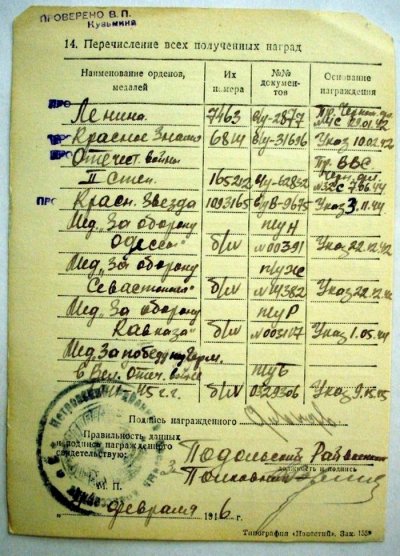 ПРОВЕРЕНО В. П.
Кузьмина
14. Перечисление всех полученных наград
Наименование орденов, медалей
Их номера
№№ документов
Основание награждения
ПРО Ленина 7463 о/у-2877
Красное Знамя 6814 Указ 10.02.42
Отечест. война Пр. ВВС
II степ. 165212 7.06.44
ПРО Красн. Звезда 1093165 Указ 3.11.44
Мед. „За оборону
Одессы" б/н №00391 Указ 22.12.42
Мед. „За оборону
Севастополя" б/н №14382 Указ 22.12.42
Мед. „За оборону
Кавказа" б/н №003117 Указ 1.05.44
Мед. За победу над Герм.
в Вел. Отеч. войне
45 г.г. б/н 0329306 Указ 9.05.45
Подпись награжденного
Правильность данных
и подписи награжденного
свидетельствую:
Подольский Райвоенком
Полковник
должность и подпись
М. П.
„ " февраля 1946 г.
Типография „Известий". Зак. 155